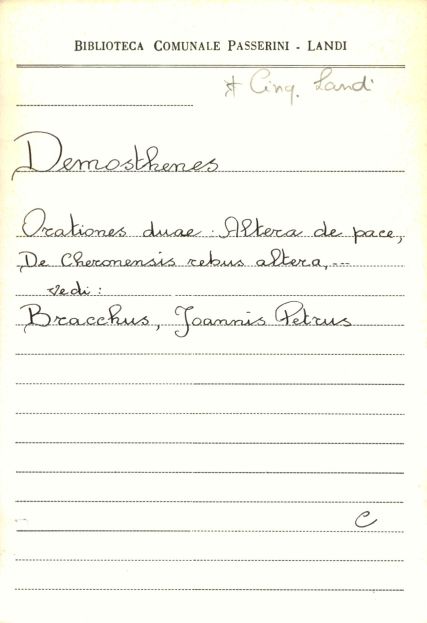 BIBLIOTECA COMUNALE PASSERINI - LANDI
Cinq. Landi
Demosthenes
Orationes duae : Altera de pace,
De Cheronensis rebus altera,...
vedi :
Bracchus, Joannis Petrus
C